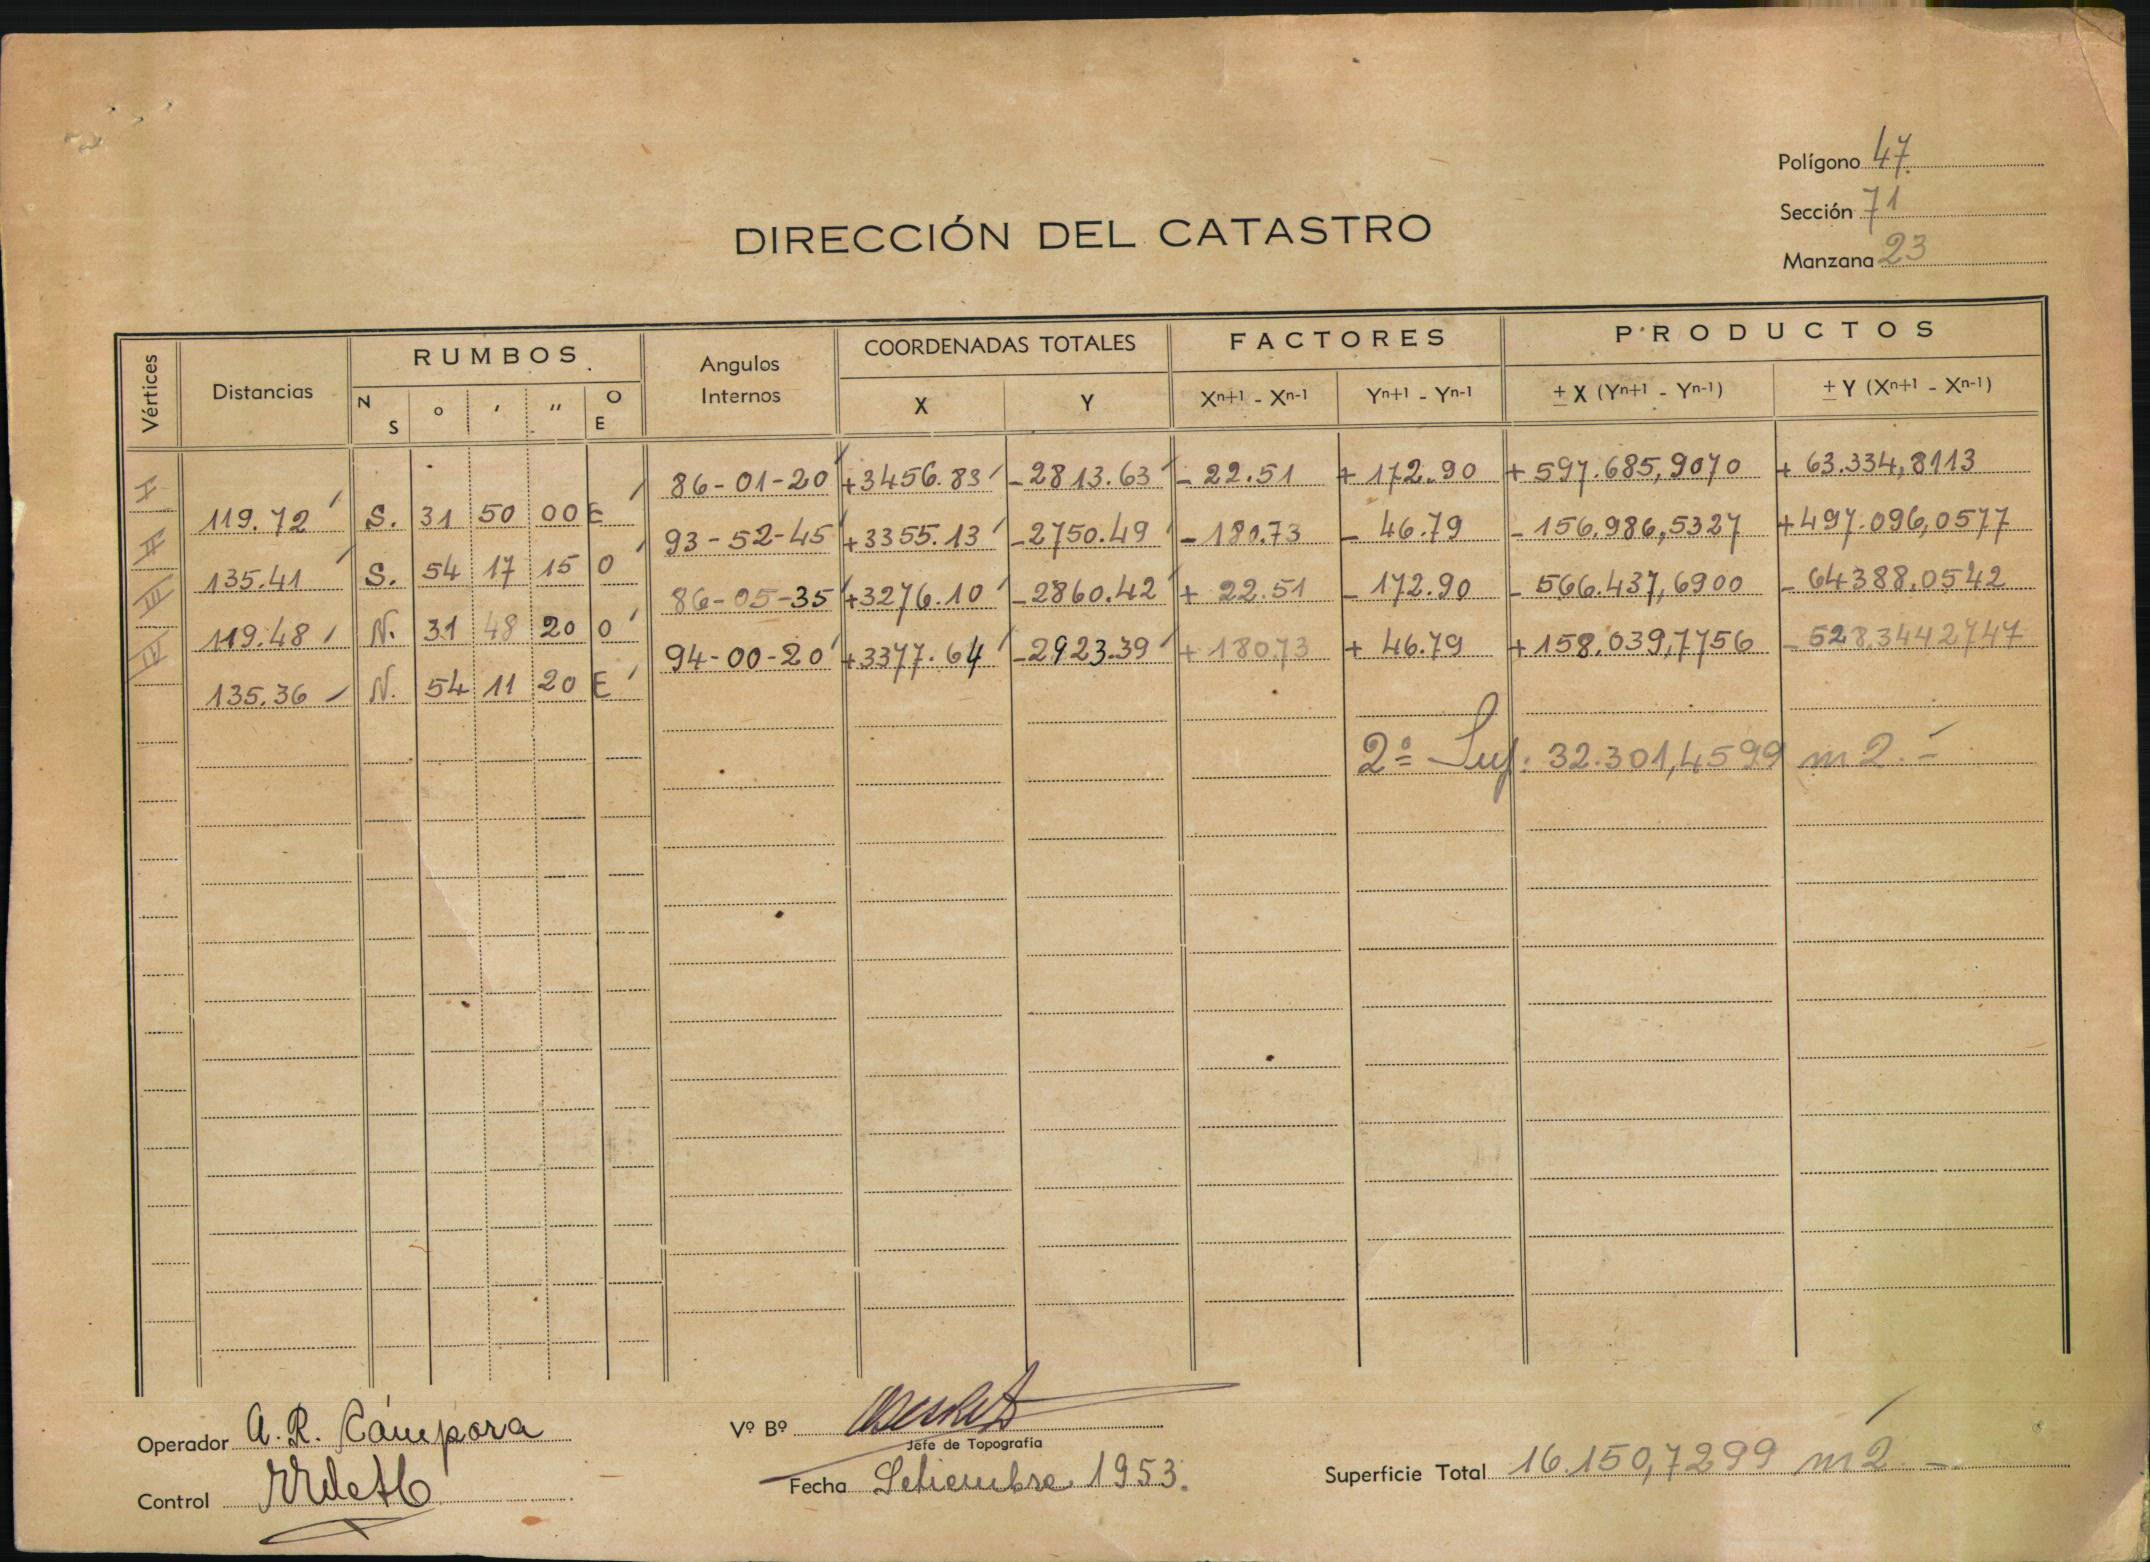 Polígono 47.
Sección 71
Manzana 23
DIRECCIÓN DEL CATASTRO
Vértices Distancias RUMBOS Angulos Internos COORDENADAS TOTALES FACTORES PRODUCTOS
N S o ' '' O E X Y Xn+1 - Xn-1 Yn+1 - Yn-1 ± X (Yn+1 - Yn-1) ± Y (Xn+1 - Xn-1)
I 86-01-20 +3456.83 -2813.63 - 22.51 + 172.90 + 597.685,9070 + 63.334,8113
119.72 S. 31 50 00 E
II 93-52-45 +3355.13 -2750.49 - 180.73 - 46.79 - 156.986,5327 +497.096,0577
135.41 S. 54 17 15 O
III 86-05-35 +3276.10 -2860.42 + 22.51 - 172.90 - 566.437,6900 - 64388,0542
119.48 N. 31 48 20 O
IV 94-00-20 +3377.64 -2923.39 + 180.73 + 46.79 +158.039,7756 - 528.344,2747
135.36 N. 54 11 20 E
2º Sup: 32.301,4599 m2.-
Operador A. R. Cámpora
Vº Bº
Jefe de Topografía
Control
Fecha Setiembre 1953.
Superficie Total 16.150,7299 m2.-